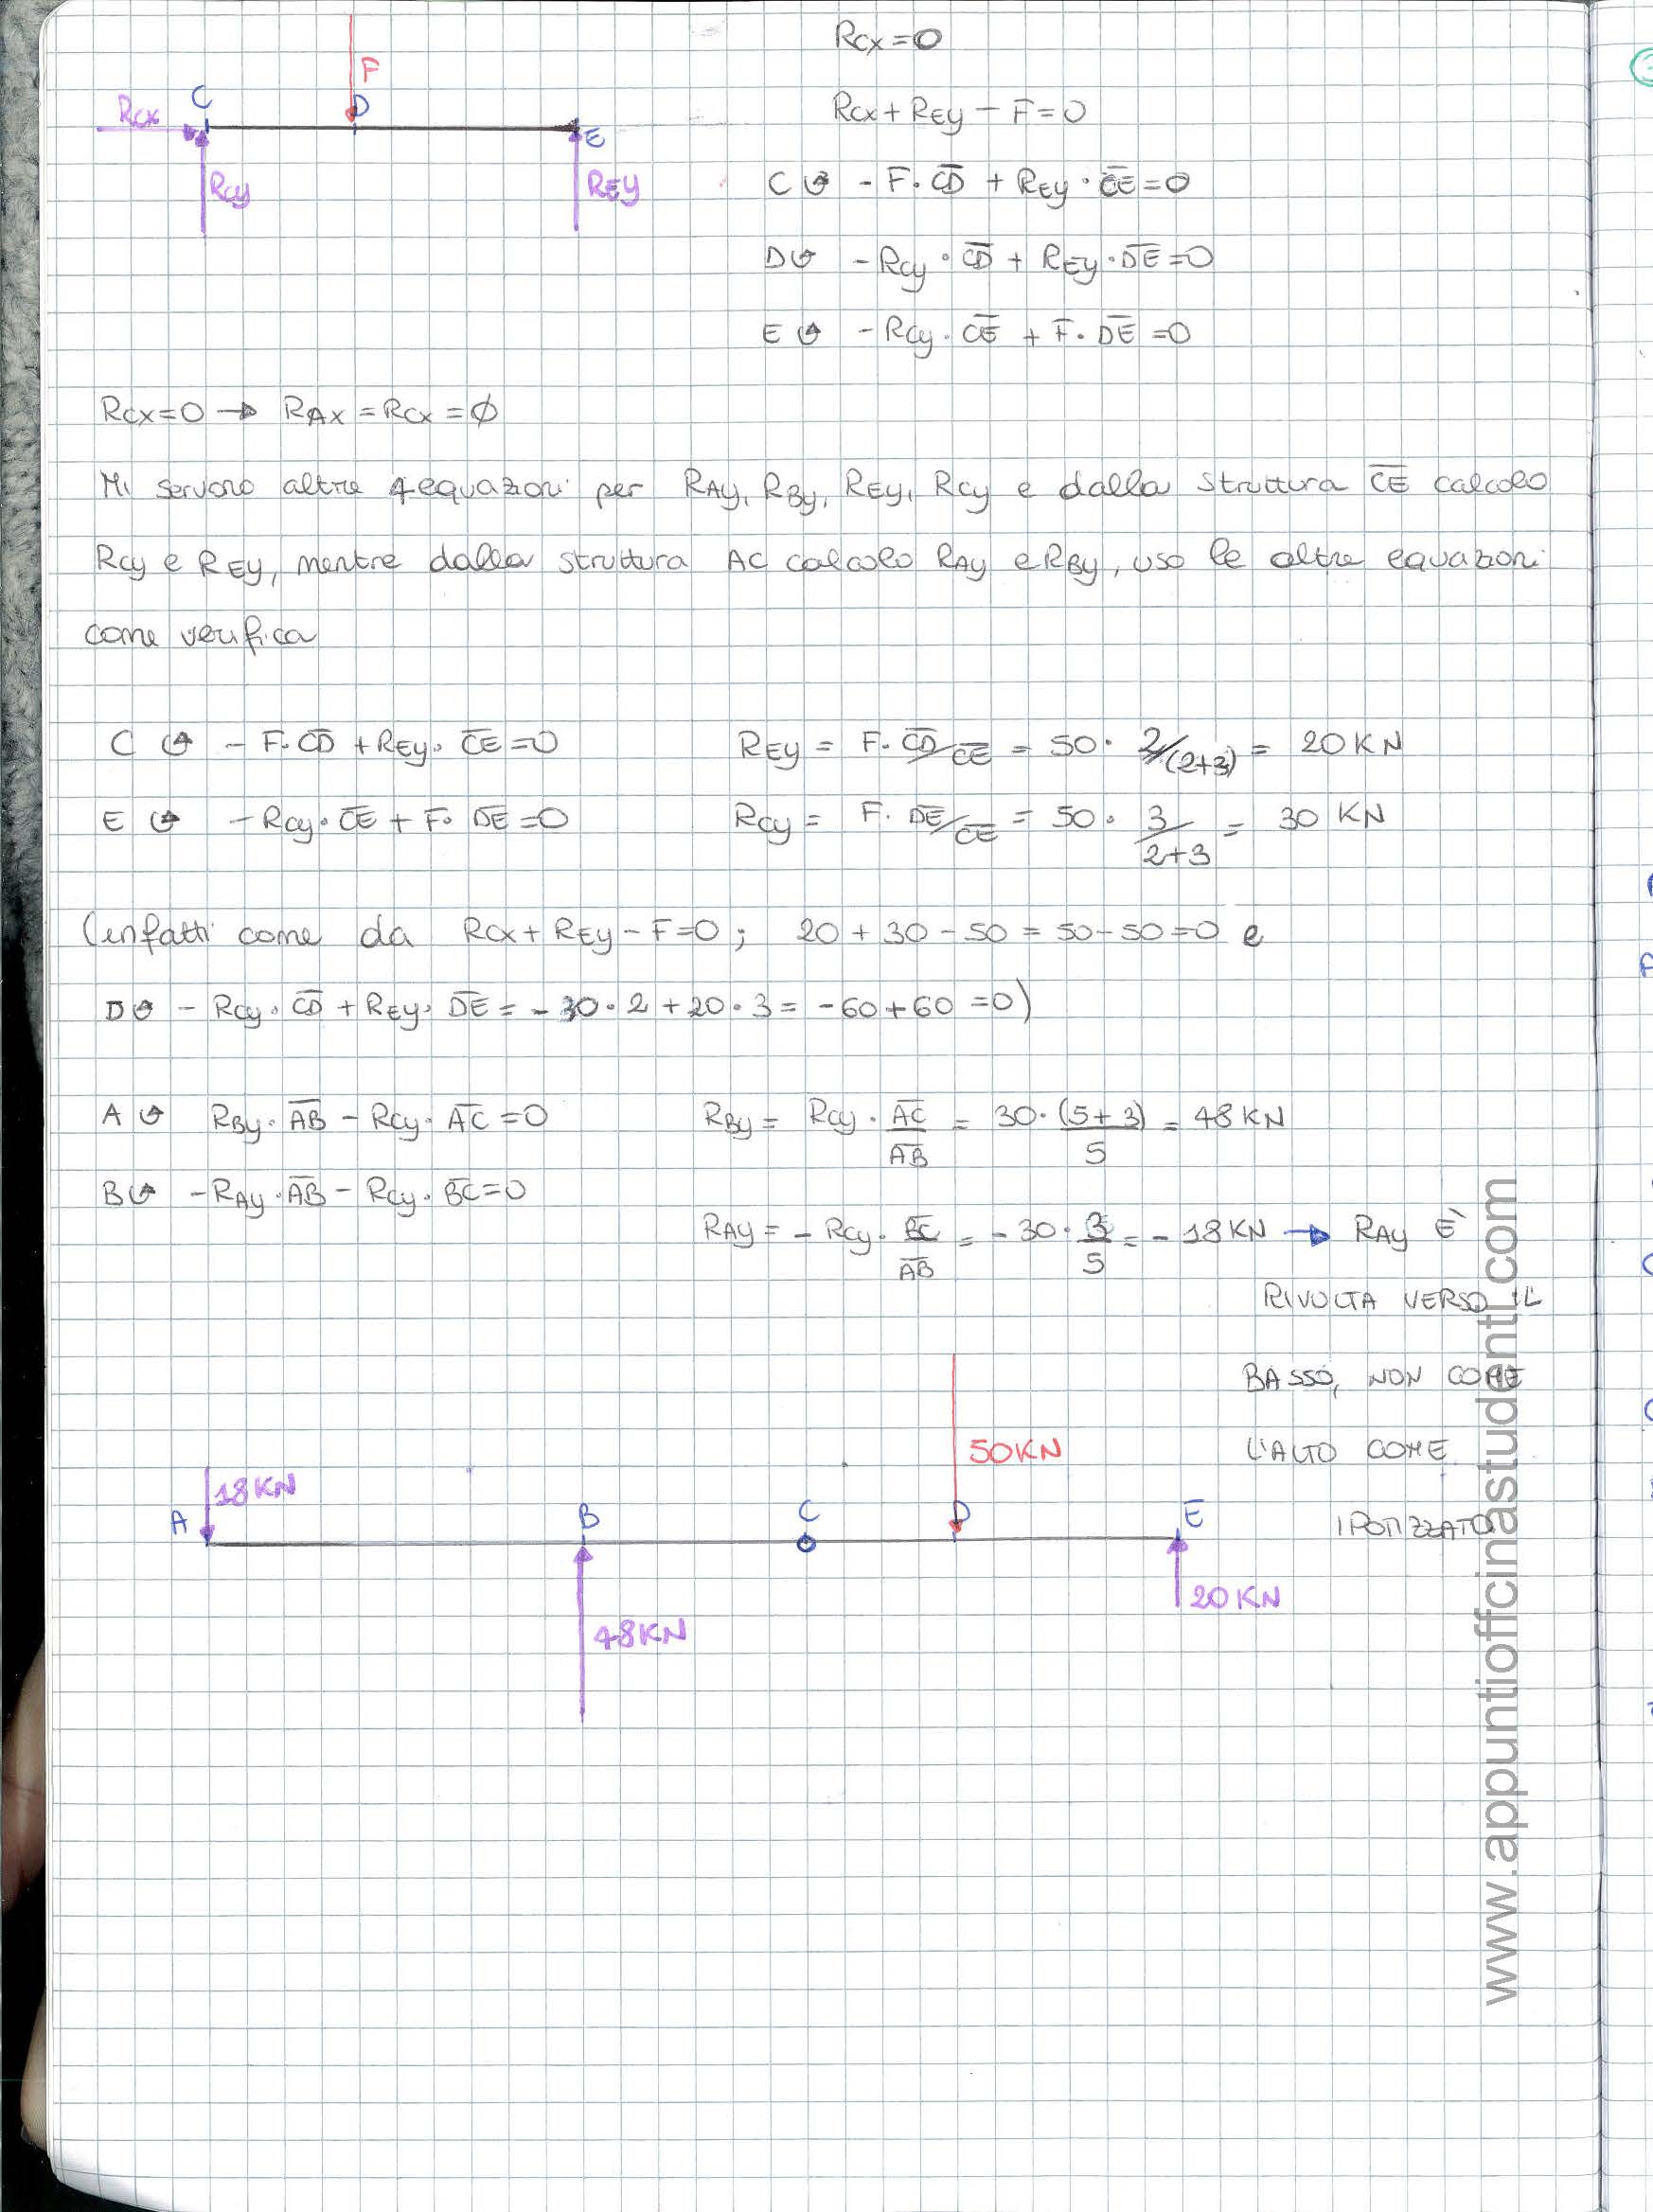 Rcx=0
F
Rcx C D E
Rcx+REy-F=0
Rcy REy
C↺ -F·C̅D̅ + REy·C̅E̅=0
D↺ -Rcy·C̅D̅ + REy·D̅E̅=0
E↺ -Rcy·C̅E̅ + F·D̅E̅=0
Rcx=0 → RAx=Rcx=∅
Mi servono altre 4 equazioni per RAy, RBy, REy, Rcy e dalla struttura C̅E̅ calcolo
Rcy e REy, mentre dalla struttura AC calcolo RAy e RBy, uso le altre equazioni
come verifica
C↺ -F·C̅D̅ + REy·C̅E̅=0 REy = F·C̅D̅/C̅E̅ = 50·2/(2+3) = 20KN
E↺ -Rcy·C̅E̅ + F·D̅E̅=0 Rcy = F·D̅E̅/C̅E̅ = 50·3/2+3 = 30 KN
(infatti come da Rcx+REy-F=0; 20+30-50=50-50=0 e
D↺ -Rcy·C̅D̅ + REy·D̅E̅ = -30·2+20·3= -60+60=0)
A↺ RBy·A̅B̅-Rcy·A̅C̅=0 RBy = Rcy·A̅C̅/A̅B̅ = 30·(5+3)/5 = 48KN
B↺ -RAy·A̅B̅-Rcy·B̅C̅=0
RAy = -Rcy·B̅C̅/A̅B̅ = -30·3/5 = -18KN → RAy È
RIVOLTA VERSO IL
BASSO, NON COME
L'ALTO COME
IPOTIZZATO
50KN
18KN
A B C D E
20KN
48KN
www.appuntiofficinastudenti.com